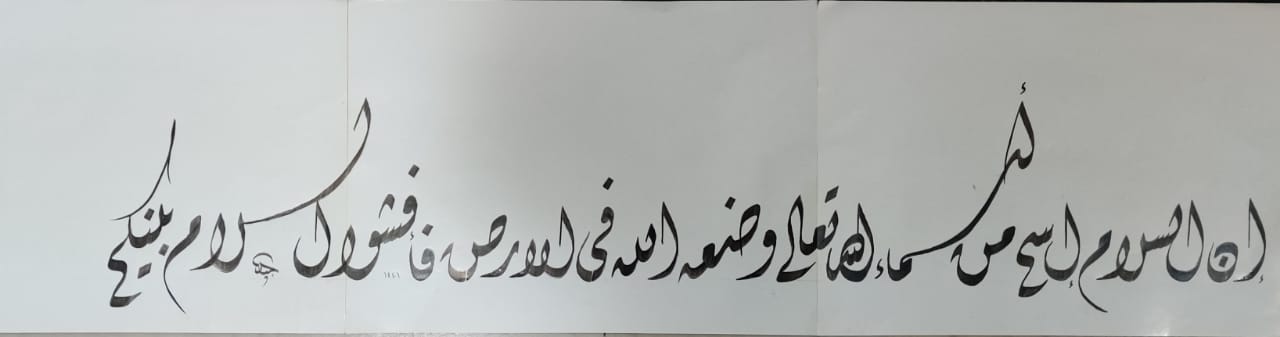 إن السلام إسم من أسماء الله تعالى وضعه الله في الارض فأفشوا السلام بينكم
١٤٤٦